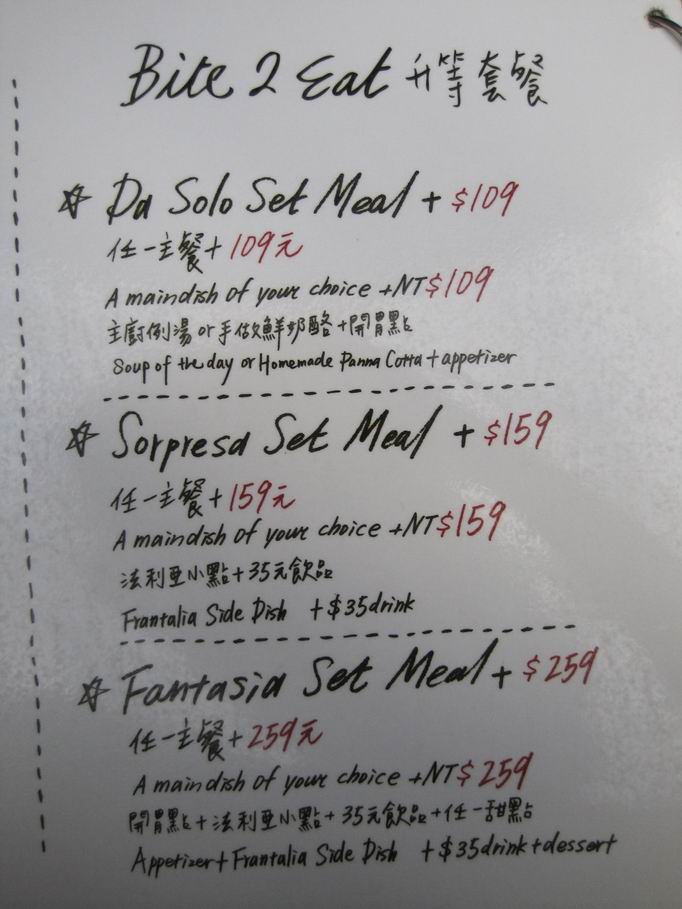 Bite 2 Eat 升等套餐
Da Solo Set Meal + $109
任一主餐+109元
A maindish of your choice +NT$109
主廚例湯or手做鮮奶酪+開胃點
Soup of the day or Homemade Panna Cotta + appetizer
Sorpresa Set Meal + $159
任一主餐+159元
A maindish of your choice +NT$159
法利亞小點+35元飲品
Frantalia Side Dish +$35drink
Fantasia Set Meal + $259
任一主餐+259元
A maindish of your choice +NT$259
開胃點+法利亞小點+35元飲品+任一甜點
Appetizer+Frantalia Side Dish +$35drink+dessert